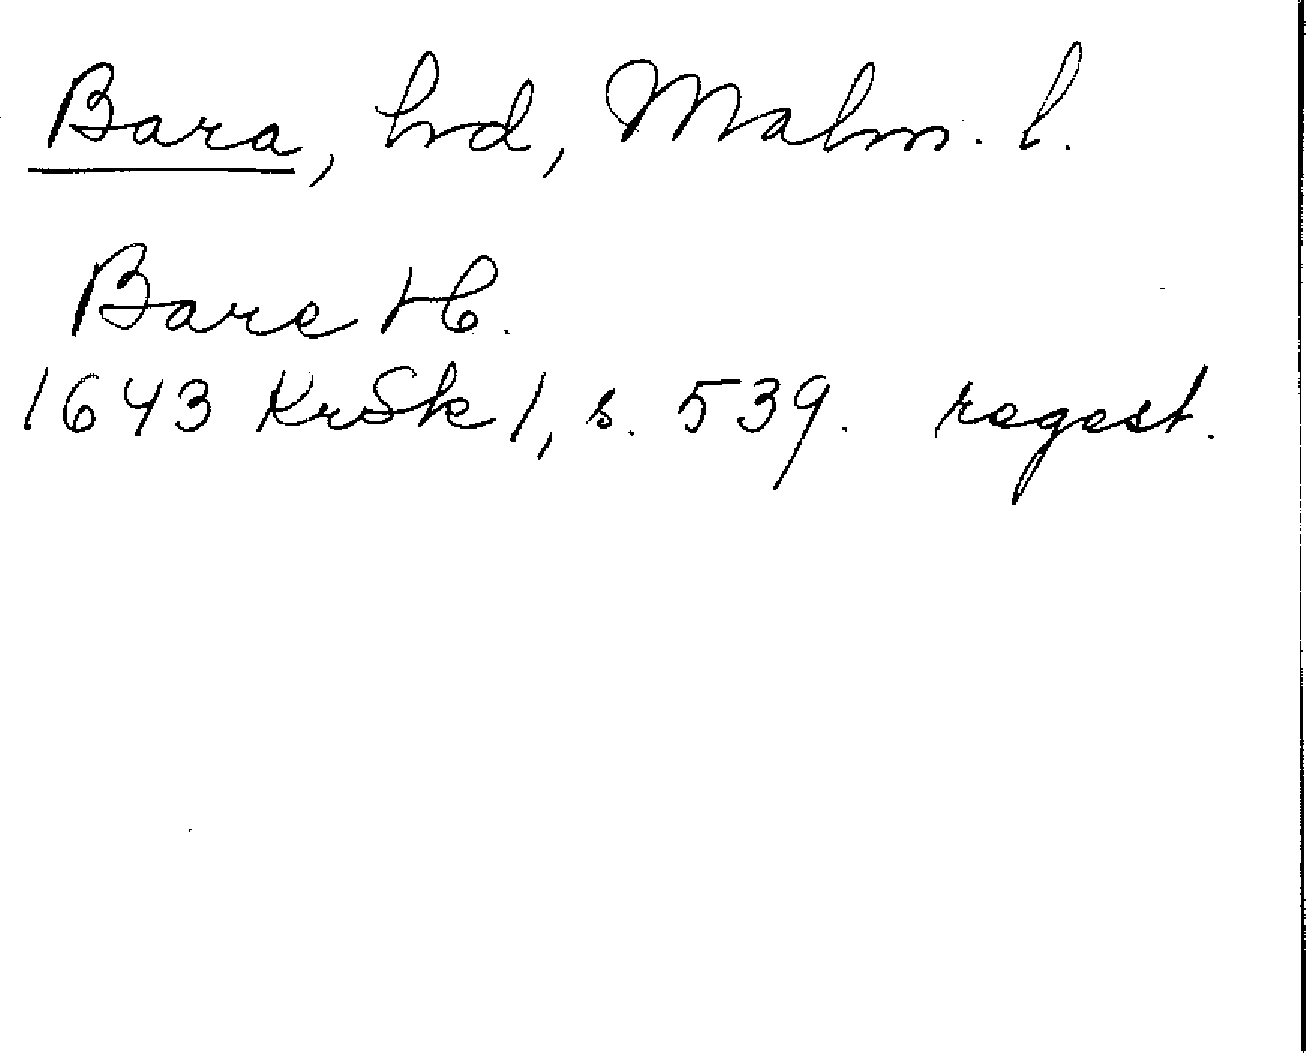 Bara, hrd, Malm. l.
Bare H.
1643 KrSk 1, s. 539. regest.